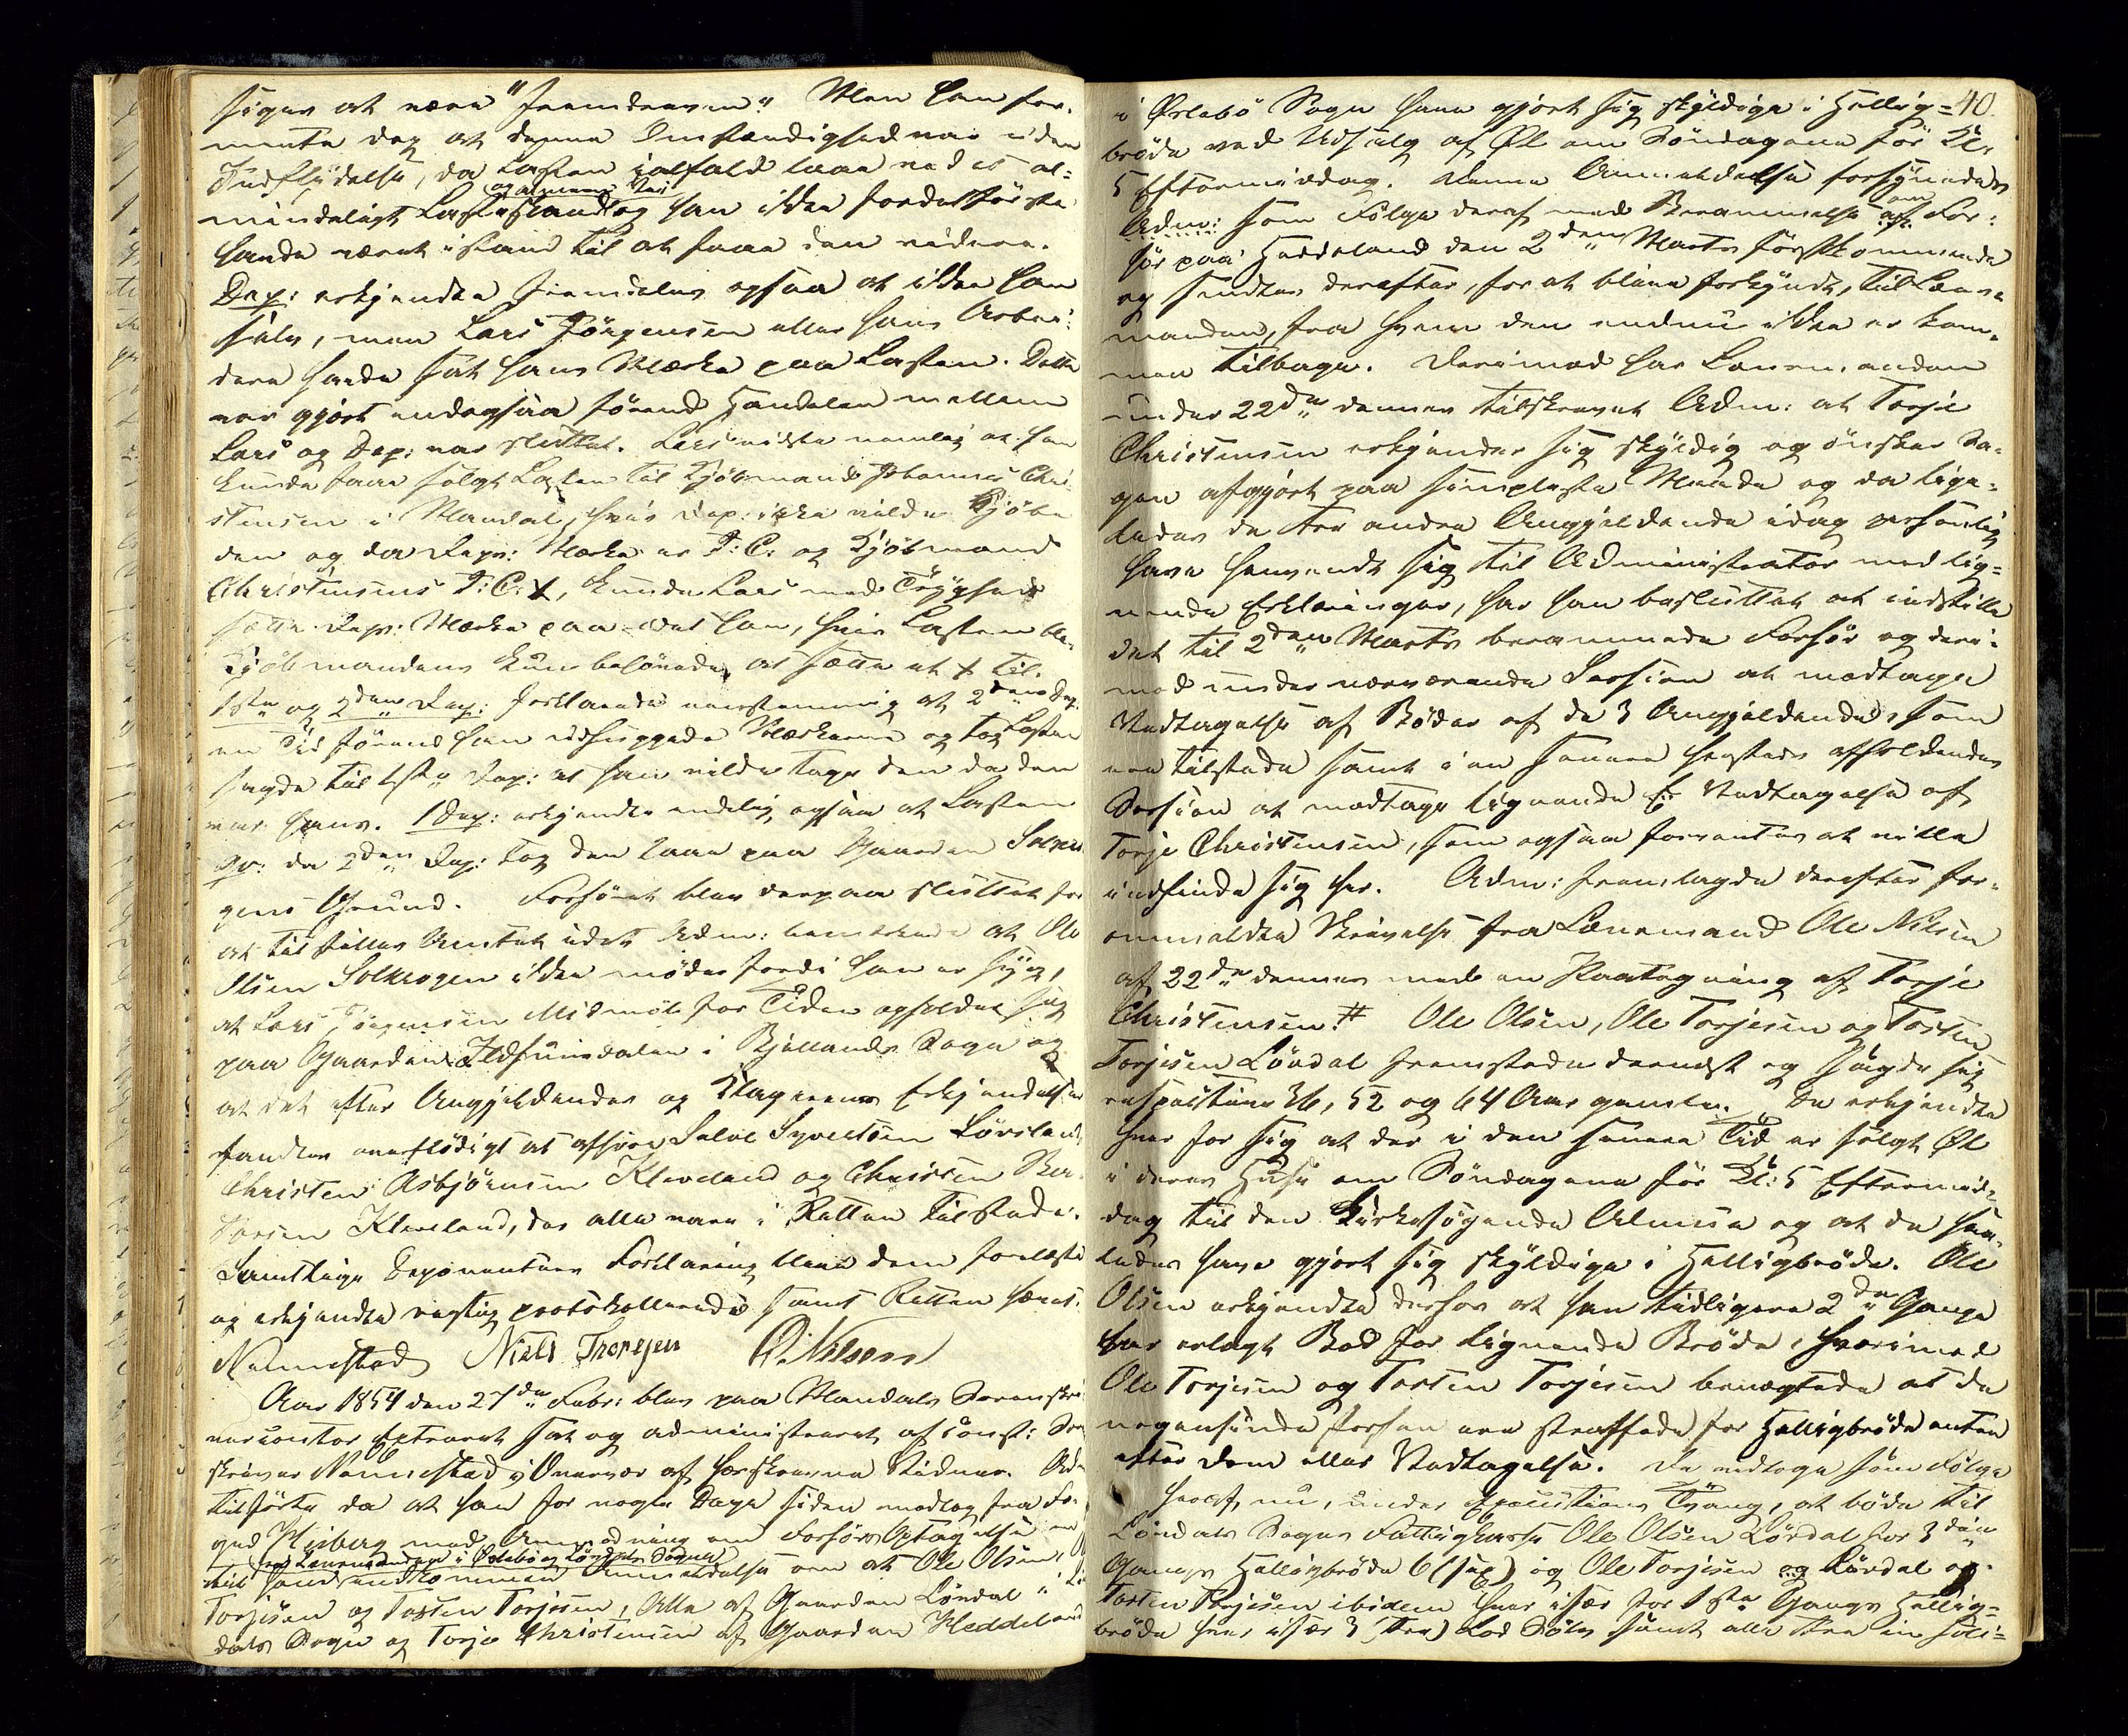 siges at være "fremdreven". Men han for-
mente dog at denne Omstændighed var uden
Indflydelse, da Lasten ialfald laae ved et al-
og almeen Vei
mindeligt Lastestand og han ikke fordetførste
havde været istand til at faae den videre.
Dep: erkjendte fremdeles ogsaa at ikke han
selv, men Lars Jörgensen eller hans Arbei-
dere havde sat hans Mærke paa Lasten. Dette
var gjort endogsaa førend Handelen mellem
Lars og Dep: var sluttet. Lars vidste nemlig at han
kunde faae solgt Lasten til Kjöbmand Johannes Chri-
stensen i Mandal, hvis Dep: ikke vilde kjöbe
den og da Depn: Mærke er T: C: og Kjöbmand
Christensens T: C: X, kunde Lars med Tryghed
sætte Depn: Mærke paa idet han, hvis Lasten blev
Kjöbmandens kun behøvede at sætte et X til.
1ste og 2den Dep: forklarede overstemmig at 2den Dep:
en Tid førend han udhuggede Mærkerne og tog Lasten
sagde til 1ste Dep: at han vilde tage den da den
var hans. 1 Dep: erkjendte endelig ogsaa at Lasten
da 2den Dep: tog den laae paa Gaarden Solkro-
gens Grund. Forhöret blev derpaa sluttet for
at tilstilles Amtet idet Adm: bemærkede at Ole
Olsen Solkrogen ikke møder fordi han er syg,
at Lars Jörgensen Midmöl for Tiden opholder sig
paa Gaarden Ildhuusdalen i Bjellands Sogn og
at det efter Angjeldendes og Klagerens Erkjendelser
fandtes overflödigt at afhøre Salve Syvertsen Lövsland
Christen Asbjörnsen Kleveland og Christen Ber-
Kleveland, der alle vare i Retten tilstede.
Samtlige Deponenters Forklaring blev dem forelæst
og erkjendte rigtig protokollerede samt Retten hævet.
Nannestad Niels Thorsen O. Nilsen
Aar 1854 den 27de Febr: blev paa Mandals Sorenskri-
vercontor Extraret sat og administreret af const: Soren-
skriver Nannestad i Overvær af hosskrevne Vidner. Adm:
tilførte da at han for nogle Dage siden modtog fra Fo-
ged Heiberg med Anmodning om Forhørs Optagelse en
fra Lensmanden i Øslebö og Löudals Sogne
til ham indkommen Anmeldelse om at Ole Olsen, Ole
Torjesen og Tosten Torjesen, Alle af Gaarden Löudal i Löu-
dals Sogn og Torje Christensen af Gaarden Heddeland
40.
i Øslebö Sogn have gjort sig skyldige i Hellig-
bröde ved Udsalg af Øl om Söndagene för Kl.
5 Eftermiddag. Denne Anmeldelse forsynedes
om
Adm: som Følge deraf med Berammelse af For-
hör paa Heddeland den 2den Marts førstkommende
og sendtes derefter, for at blive forkyndt, til Lens-
manden, fra hvem den endnu ikke er kom-
men tilbage. Derimod har Lensmanden
under 22de dennes tilskrevet Adm: at Torje
Christensen erkjender sig skyldig og ønsker Sa-
gen afgjort paa simpleste Maade og da lige-
ledes de tre andre Angjeldende idag personlig
have henvendt sig til Administrator med lig-
nende Erklæringer, har han besluttet at indstille
det til 2den Marts berammede Forhör og deri-
mod under nærværende Session at modtage
Vedtagelse af Böder af de 3 Angjeldende, som
ere tilstede samt i en senere hersteds afholdendes
Session at modtage lignende Vedtagelse af
Torje Christensen, som ogsaa forventes at ville
indfinde sig her. Adm: fremlagde derefter for-
ommeldte Skrivelse fra Lensmand Ole Nilsen
af 22de dennes med en Paategning af Torje
Christensen. # Ole Olsen, Ole Torjesen og Tosten
Torjesen Löudal fremstode dernæst og sagde sig
respective 36, 52 og 64 Aar gamle. De erkjendte
hver for sig at der i den senere Tid er solgt Øl
i deres Huse om Söndagene för Kl: 5 Eftermid-
dag til den Kirkesögende Almue og at de saa-
ledes have gjort sig skyldige i Helligbröde. Ole
Olsen erkjendte derhos at han tidligere 2de Gange
har erlagt Bod for lignende Bröde, hvorimod
Ole Torjesen og Tosten Torjesen benægtede at de
nogensinde forhen ere straffede for Helligbröde enten
efter Dom eller Vedtagelse. De vedtoge som Følge
heraf nu, under Executions Tvang, at böde til
Löudals Sogns Fattigkasse Ole Olsen Löudal for 3die
Gangs Helligbröde 6 (sex) og Ole Torjesen Löudal og
Tosten Torjesen ibidem hver især for 1ste Gangs Hellig-
bröde hver især 3 (tre) Lod Sölv samt alle tre in soli-